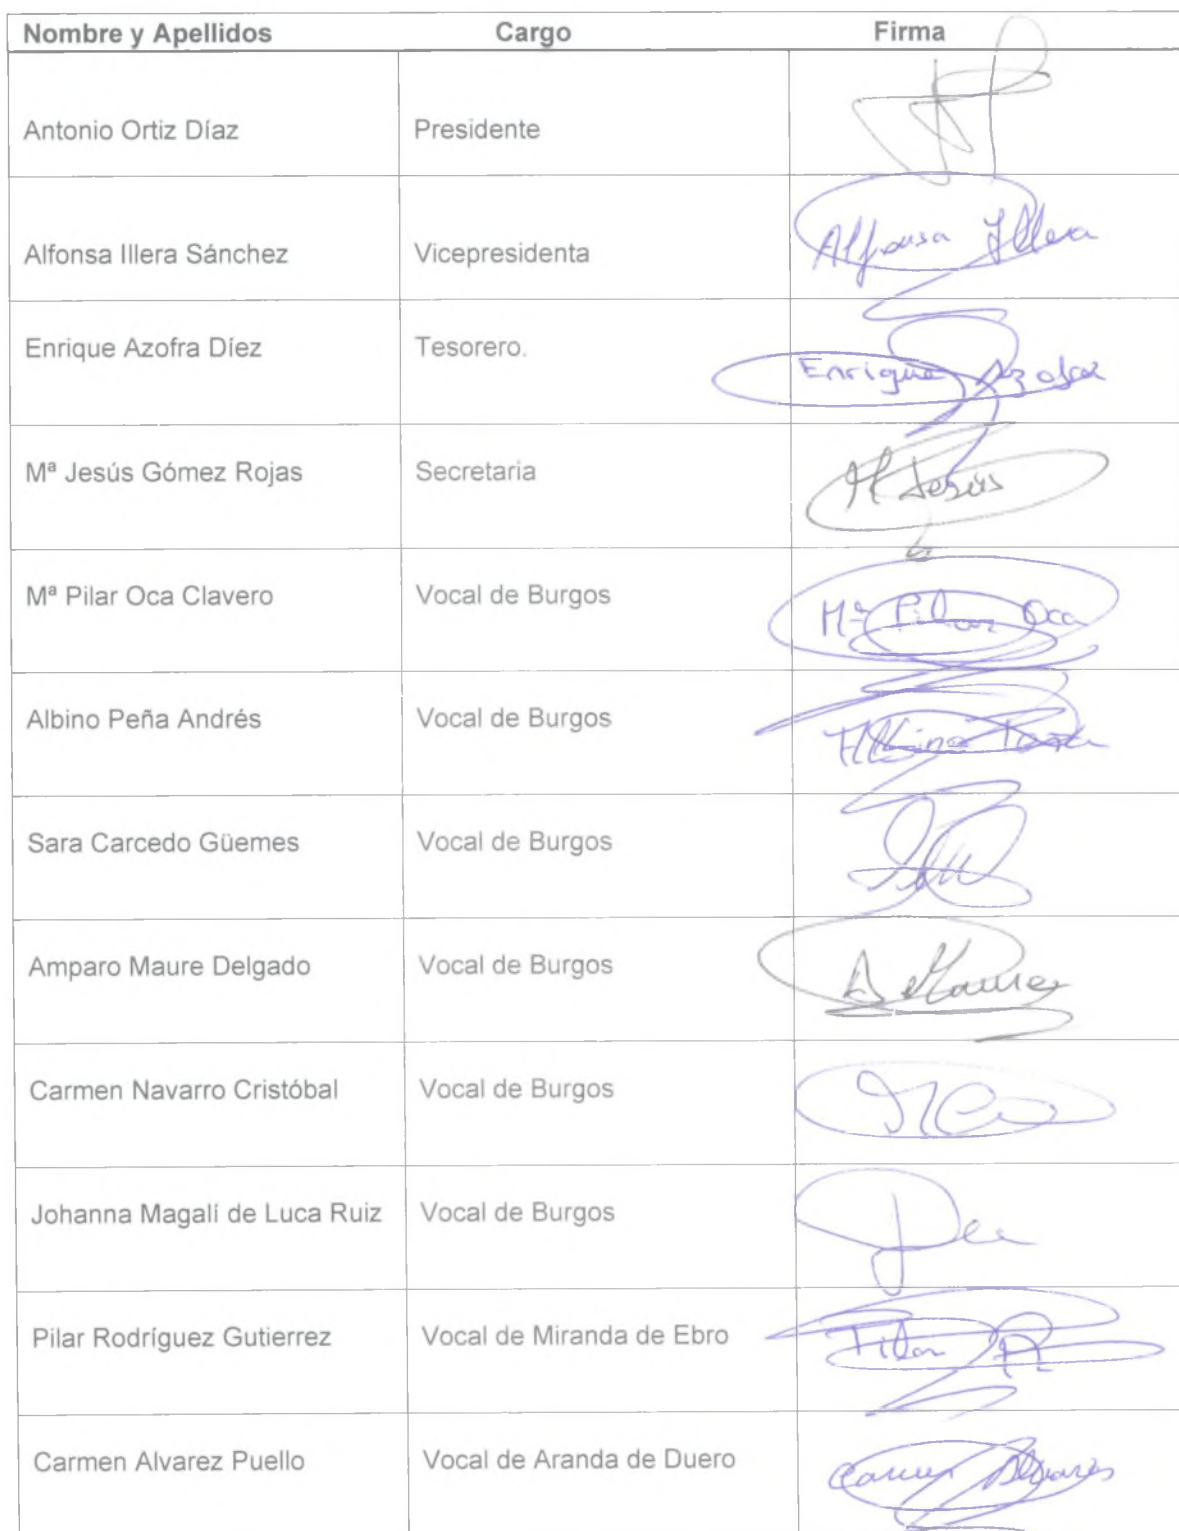 Nombre y Apellidos Cargo Firma
Antonio Ortiz Díaz Presidente
Alfonsa Illera Sánchez Vicepresidenta Alfonsa Illera
Enrique Azofra Díez Tesorero. Enrique Azofra
Mª Jesús Gómez Rojas Secretaria Mª Jesús
Mª Pilar Oca Clavero Vocal de Burgos Mª Pilar Oca
Albino Peña Andrés Vocal de Burgos Albino Peña
Sara Carcedo Güemes Vocal de Burgos
Amparo Maure Delgado Vocal de Burgos A Maure
Carmen Navarro Cristóbal Vocal de Burgos
Johanna Magalí de Luca Ruiz Vocal de Burgos
Pilar Rodríguez Gutierrez Vocal de Miranda de Ebro Pilar R
Carmen Alvarez Puello Vocal de Aranda de Duero Carmen Alvarez